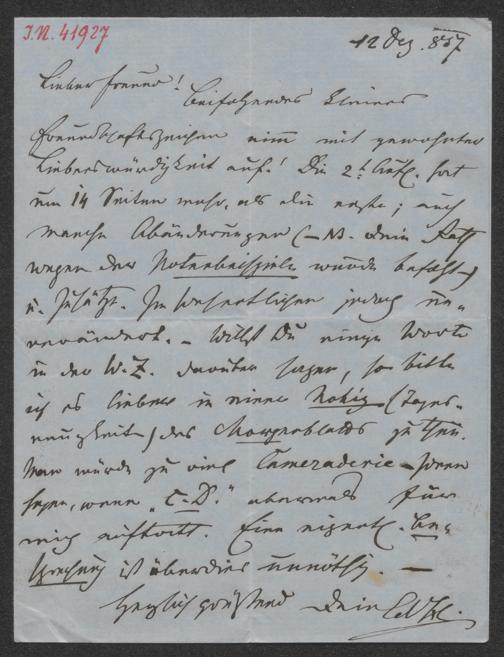 I.N. 41927
12 Dez. 857
Lieber Freund!
Beifolgendes kleines
Freundschaftszeichen nimm mit gewohnter
Liebenswürdigkeit auf! Die 2t Aufl. hat
um 14 Seiten mehr, als die erste; auch
manche Abänderungen (– NB. Dein Rath
wegen der Notenbeispiele wurde befolgt)
u. Zusätze. Im wesentlichen jedoch un-
verändert. – Willst Du einige Worte
in der W. Z. darüber sagen, so bitte
ich es lieber in einer Notiz (Tages-
neuigkeit) des Morgenblatts zu thun.
Man würde zu viel Cameraderie
sagen, wenn "C. D." abermals für
mich auftritt. Eine eigentl. Be-
sprechung ist überdies unnöthig. –
Herzlich grüßend Dein